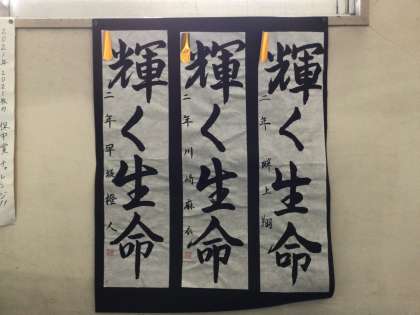 輝く生命
二年 畔上翔
輝く生命
二年 川崎麻衣
輝く生命
二年 早坂橙人